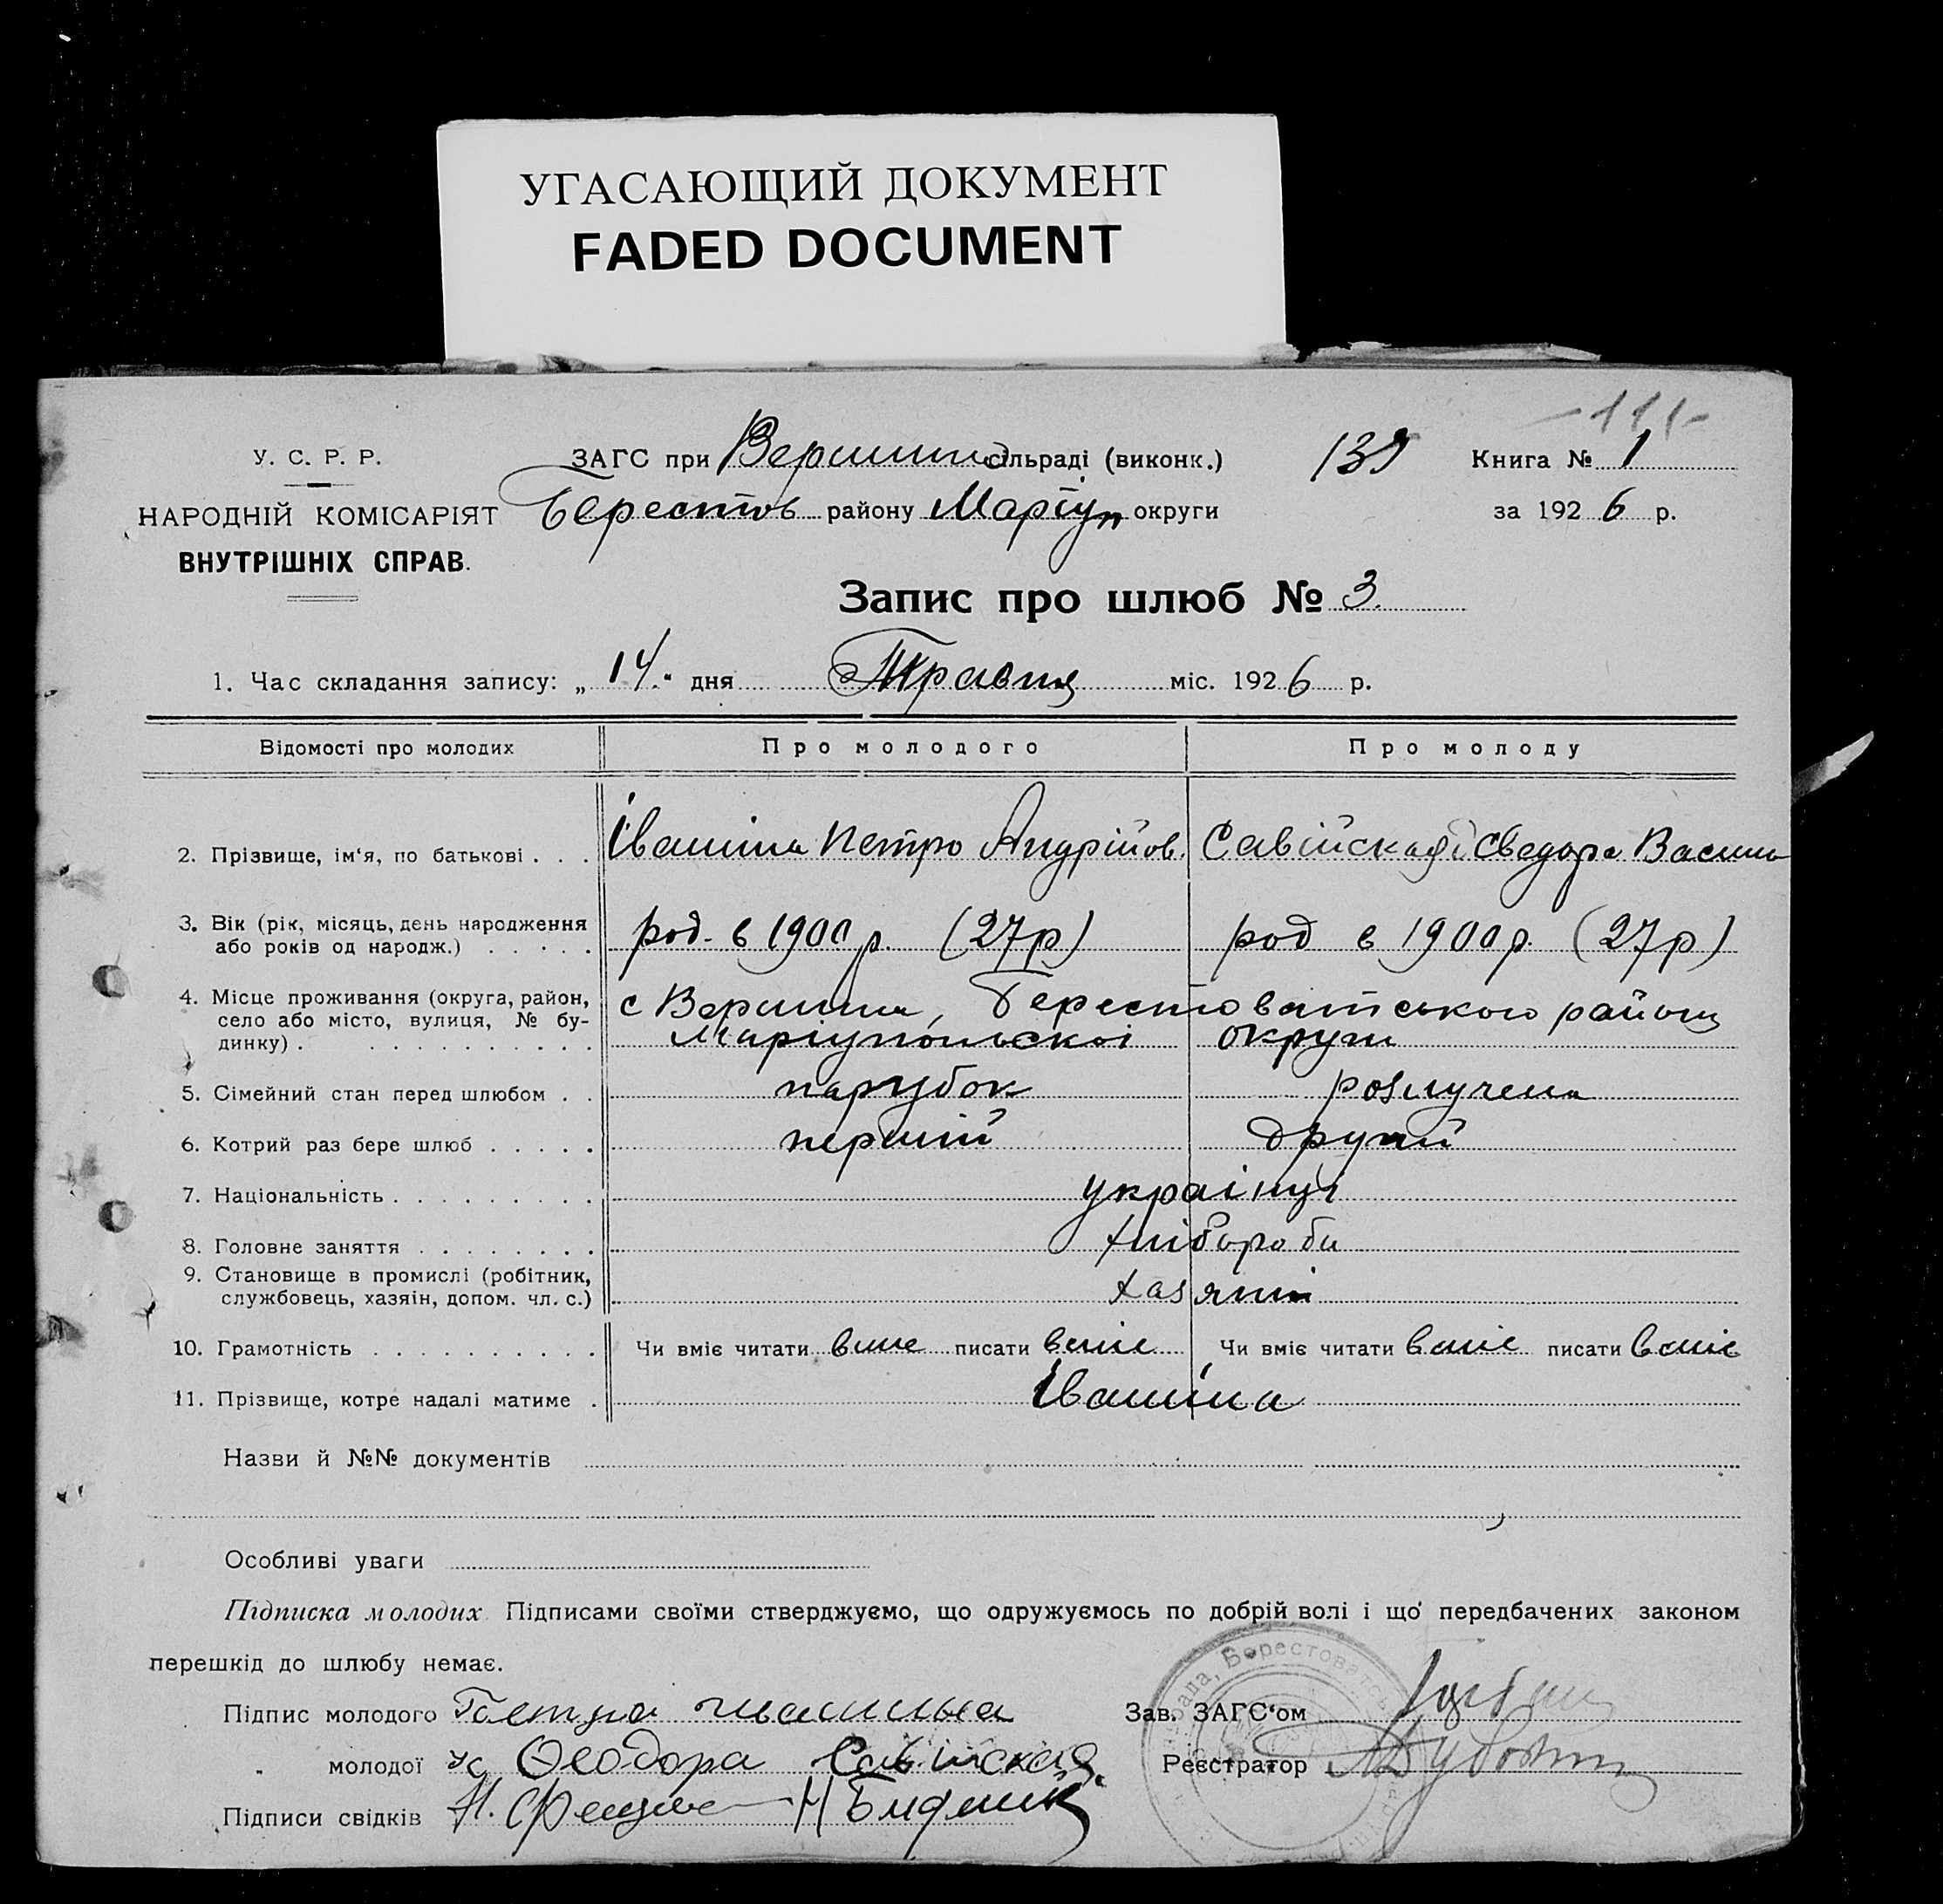 УГАСАЮЩИЙ ДОКУМЕНТ
FADED DOCUMENT
-111-
У. С. Р. Р.
НАРОДНІЙ КОМІСАРІЯТ
ВНУТРІШНІХ СПРАВ.
ЗАГС при Вершинс сільраді (виконк.) 139 Книга № 1
Берестов району Маріуп округи за 1926 р.
Запис про шлюб № 3.
1. Час складання запису: „14“ дня Травня міс. 1926 р.
Відомості про молодих Про молодого Про молоду
2. Прізвище, ім‘я, по батькові . . . Івашина Петро Андрійов. Савійская Василь
3. Вік (рік, місяць, день народження
або років од народж.) . . . . . род. в 1900 р. (27р) род в 1900 р. (27р)
4. Місце проживання (округа, район,
село або місто, вулиця, № бу-
динку) . . . . . . . . . .
с Вершина, Берестоватського району
Маріупольскоі округи
5. Сімейний стан перед шлюбом . . парубок розлучена
6. Котрий раз бере шлюб . . . . . перший другий
7. Національність . . . . . . . . . украінці
8. Головне заняття . . . . . . . . хлібороби
9. Становище в промислі (робітник,
службовець, хазяін, допом. чл. с.) хазяіни
10. Грамотність . . . . . . . . . . Чи вміє читати вміє писати вміє Чи вміє читати вміє писати вміє
11. Прізвище, котре надалі матиме . Івашина
Назви й №№ документів
Особливі уваги
Підписка молодих Підписами своїми стверджуємо, що одружуємось по добрій волі і що передбачених законом
перешкід до шлюбу немає.
Підпис молодого Зав. ЗАГС‘ом
„ молодої Феодора Савійская Реєстратор
Підписи свідків